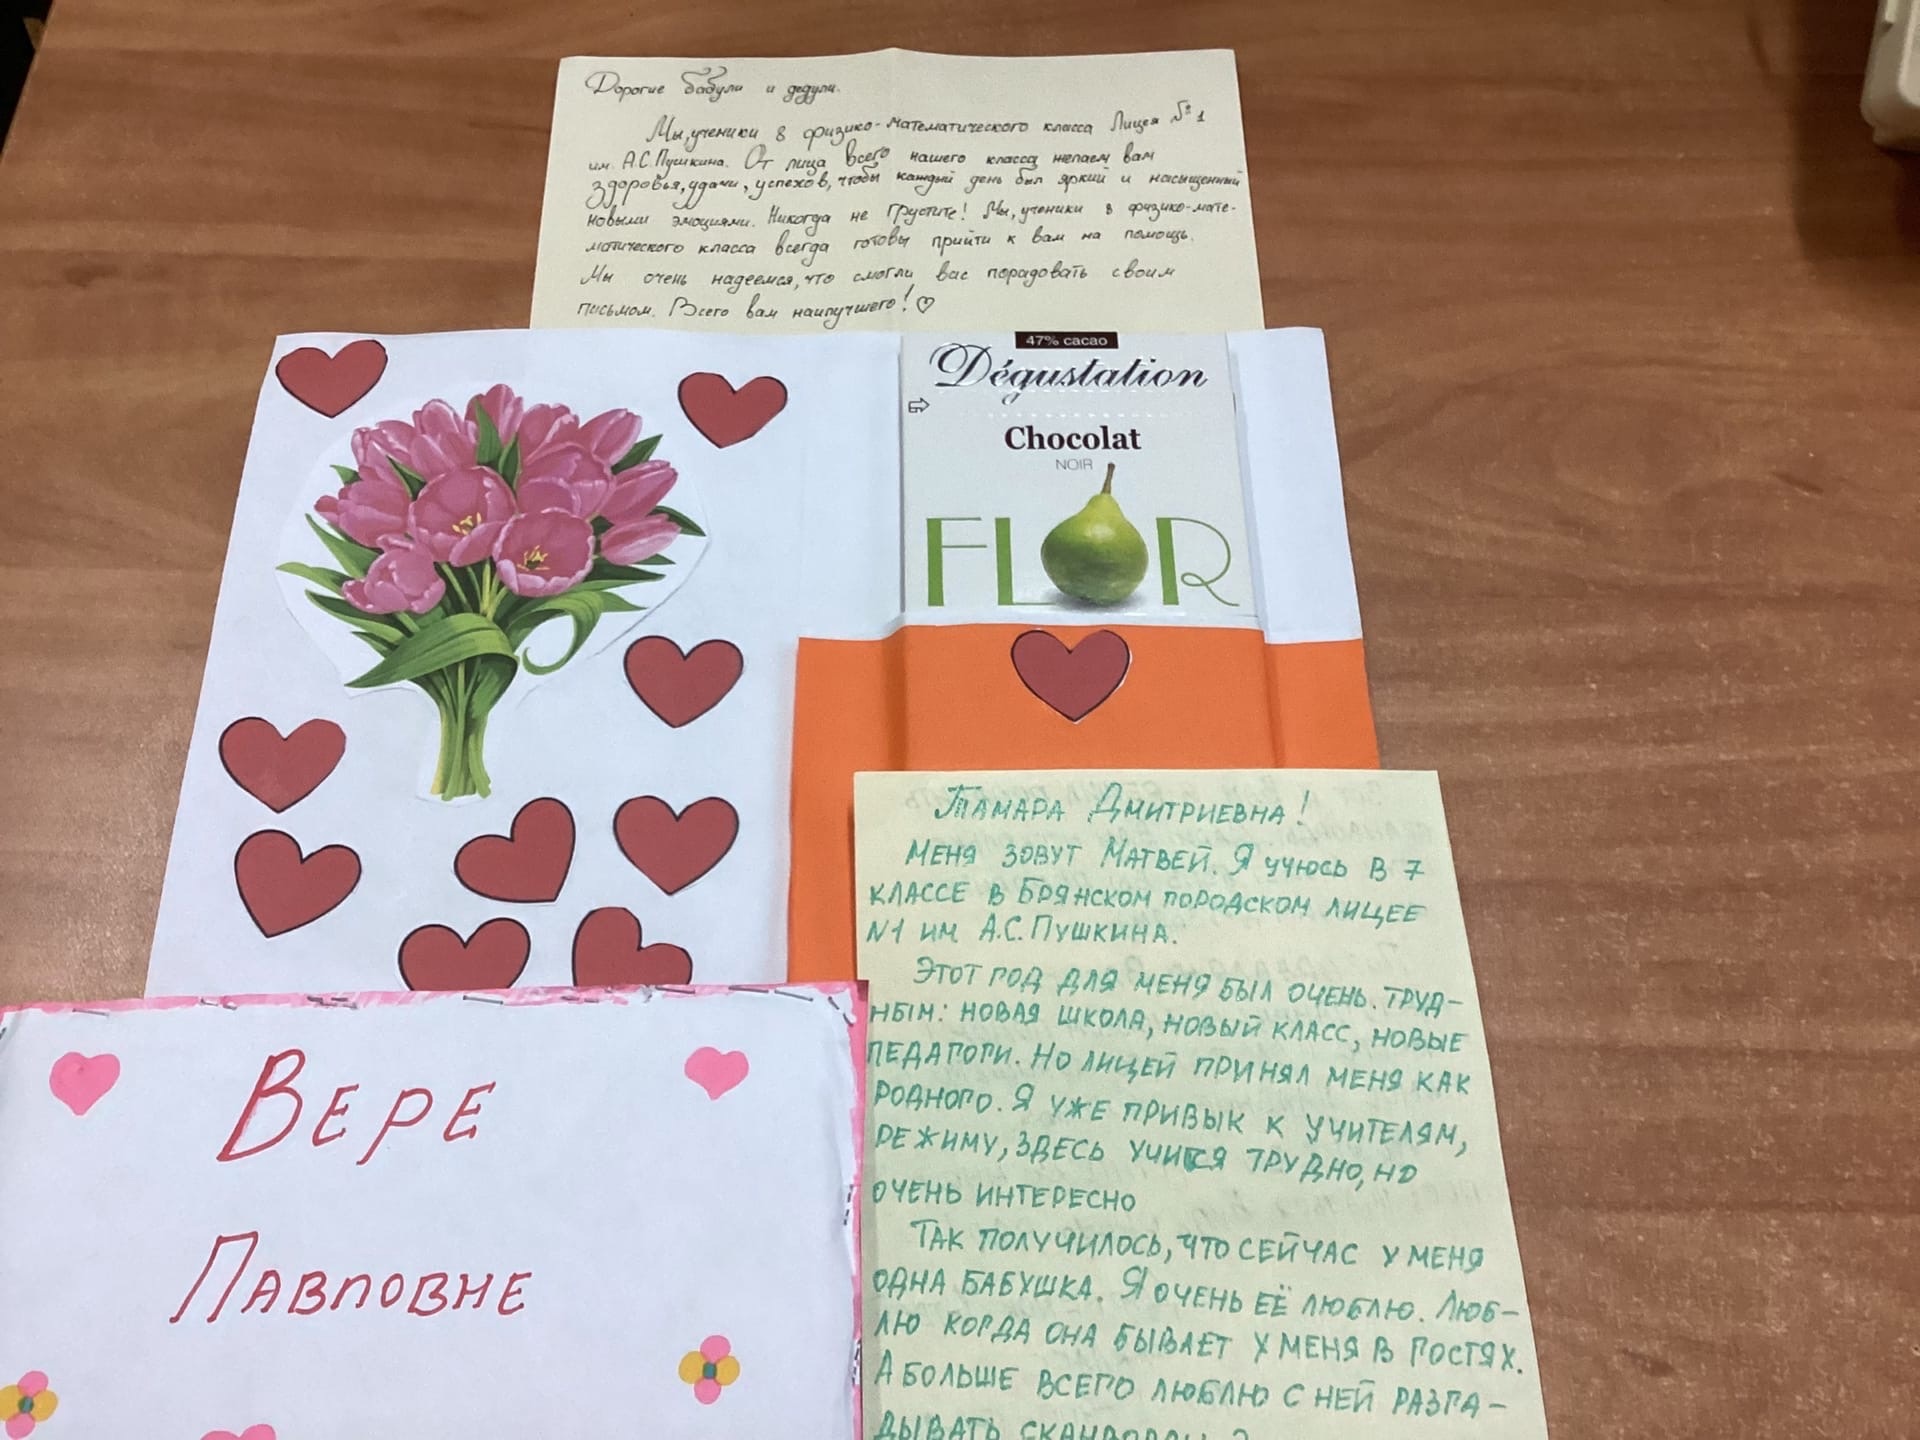 Дорогие бабули и дедули.
Мы, ученики 8 физико-математического класса Лицея №1
им. А.С.Пушкина. От лица всего нашего класса желаем вам
здоровья, удачи, успехов, чтобы каждый день был яркий и насыщенный
новыми эмоциями. Никогда не грустите! Мы, ученики 8 физико-мате-
матического класса всегда готовы прийти к вам на помощь.
Мы очень надеемся, что смогли вас порадовать своим
письмом. Всего вам наилучшего! ♡
47% cacao
Dégustation
Chocolat
NOIR
FLOR
ТАМАРА ДМИТРИЕВНА!
МЕНЯ ЗОВУТ МАТВЕЙ. Я УЧЮСЬ В 7
КЛАССЕ В БРЯНСКОМ ГОРОДСКОМ ЛИЦЕЕ
N1 ИМ А.С.ПУШКИНА.
ЭТОТ ГОД ДЛЯ МЕНЯ БЫЛ ОЧЕНЬ. ТРУД-
НЫМ: НОВАЯ ШКОЛА, НОВЫЙ КЛАСС, НОВЫЕ
ПЕДАГОГИ. НО ЛИЦЕЙ ПРИНЯЛ МЕНЯ КАК
РОДНОГО. Я УЖЕ ПРИВЫК К УЧИТЕЛЯМ,
РЕЖИМУ, ЗДЕСЬ УЧИТСЯ ТРУДНО, НО
ОЧЕНЬ ИНТЕРЕСНО
ТАК ПОЛУЧИЛОСЬ, ЧТО СЕЙЧАС У МЕНЯ
ОДНА БАБУШКА. Я ОЧЕНЬ ЕЁ ЛЮБЛЮ. ЛЮБ-
ЛЮ КОГДА ОНА БЫВАЕТ У МЕНЯ В ГОСТЯХ.
А БОЛЬШЕ ВСЕГО ЛЮБЛЮ С НЕЙ РАЗГА-
ДЫВАТЬ
ВЕРЕ
ПАВЛОВНЕ